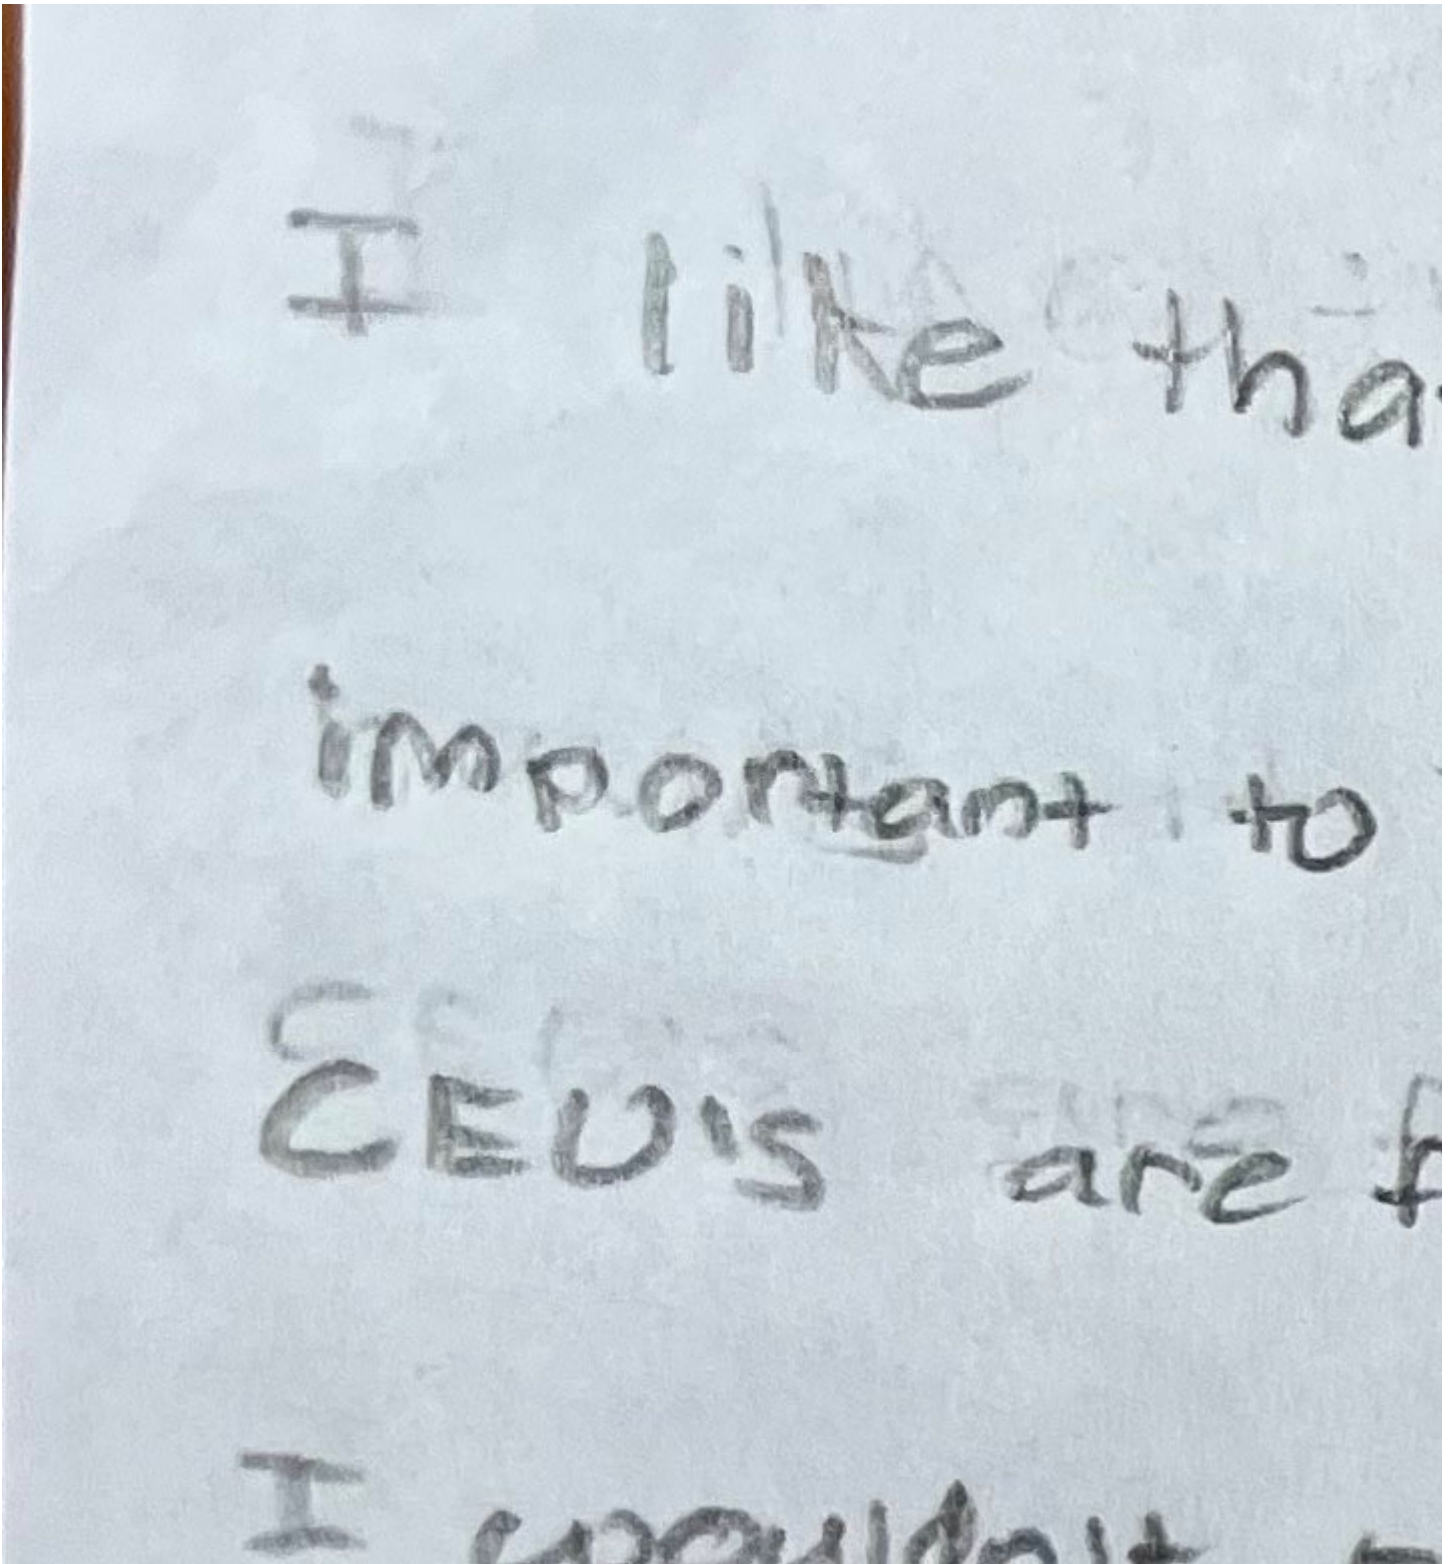 I like tha
important to
CEU's are
I wouldn't